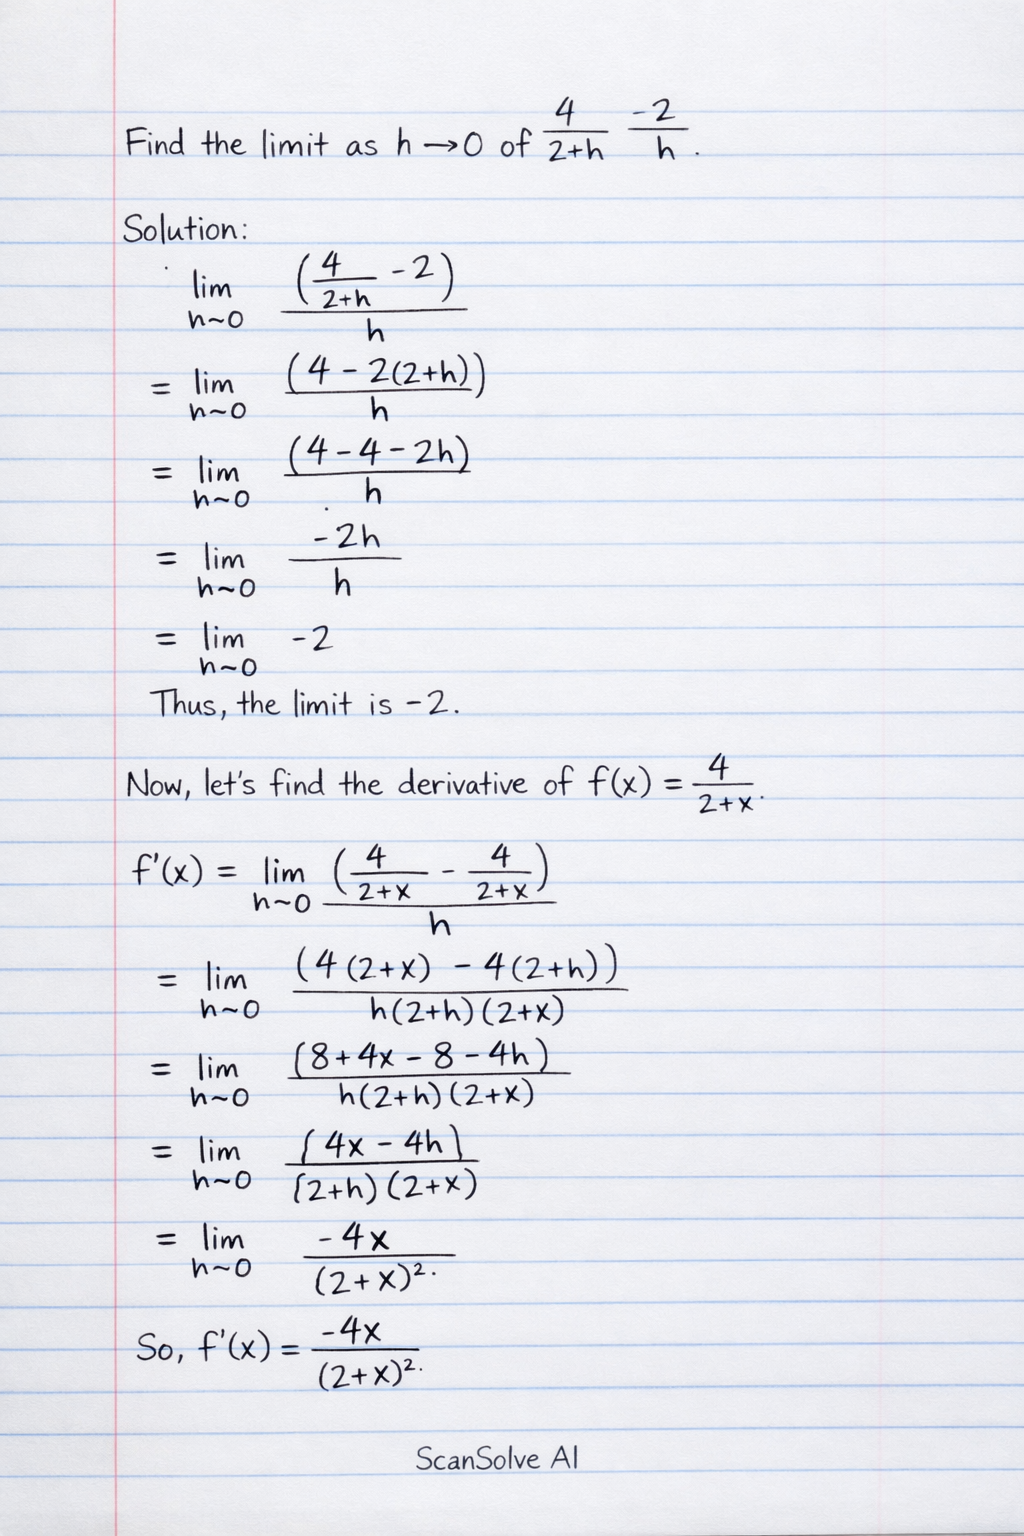 Find the limit as h→0 of 4/(2+h) -2/h.
Solution:
lim h~0 (4/(2+h) -2)/h
= lim h~0 (4-2(2+h))/h
= lim h~0 (4-4-2h)/h
= lim h~0 -2h/h
= lim h~0 -2
Thus, the limit is -2.
Now, let's find the derivative of f(x) = 4/(2+x).
f'(x) = lim h~0 (4/(2+x) - 4/(2+x))/h
= lim h~0 (4(2+x) - 4(2+h))/h(2+h)(2+x)
= lim h~0 (8+4x-8-4h)/h(2+h)(2+x)
= lim h~0 (4x-4h)/(2+h)(2+x)
= lim h~0 -4x/(2+x)².
So, f'(x) = -4x/(2+x)².
ScanSolve AI